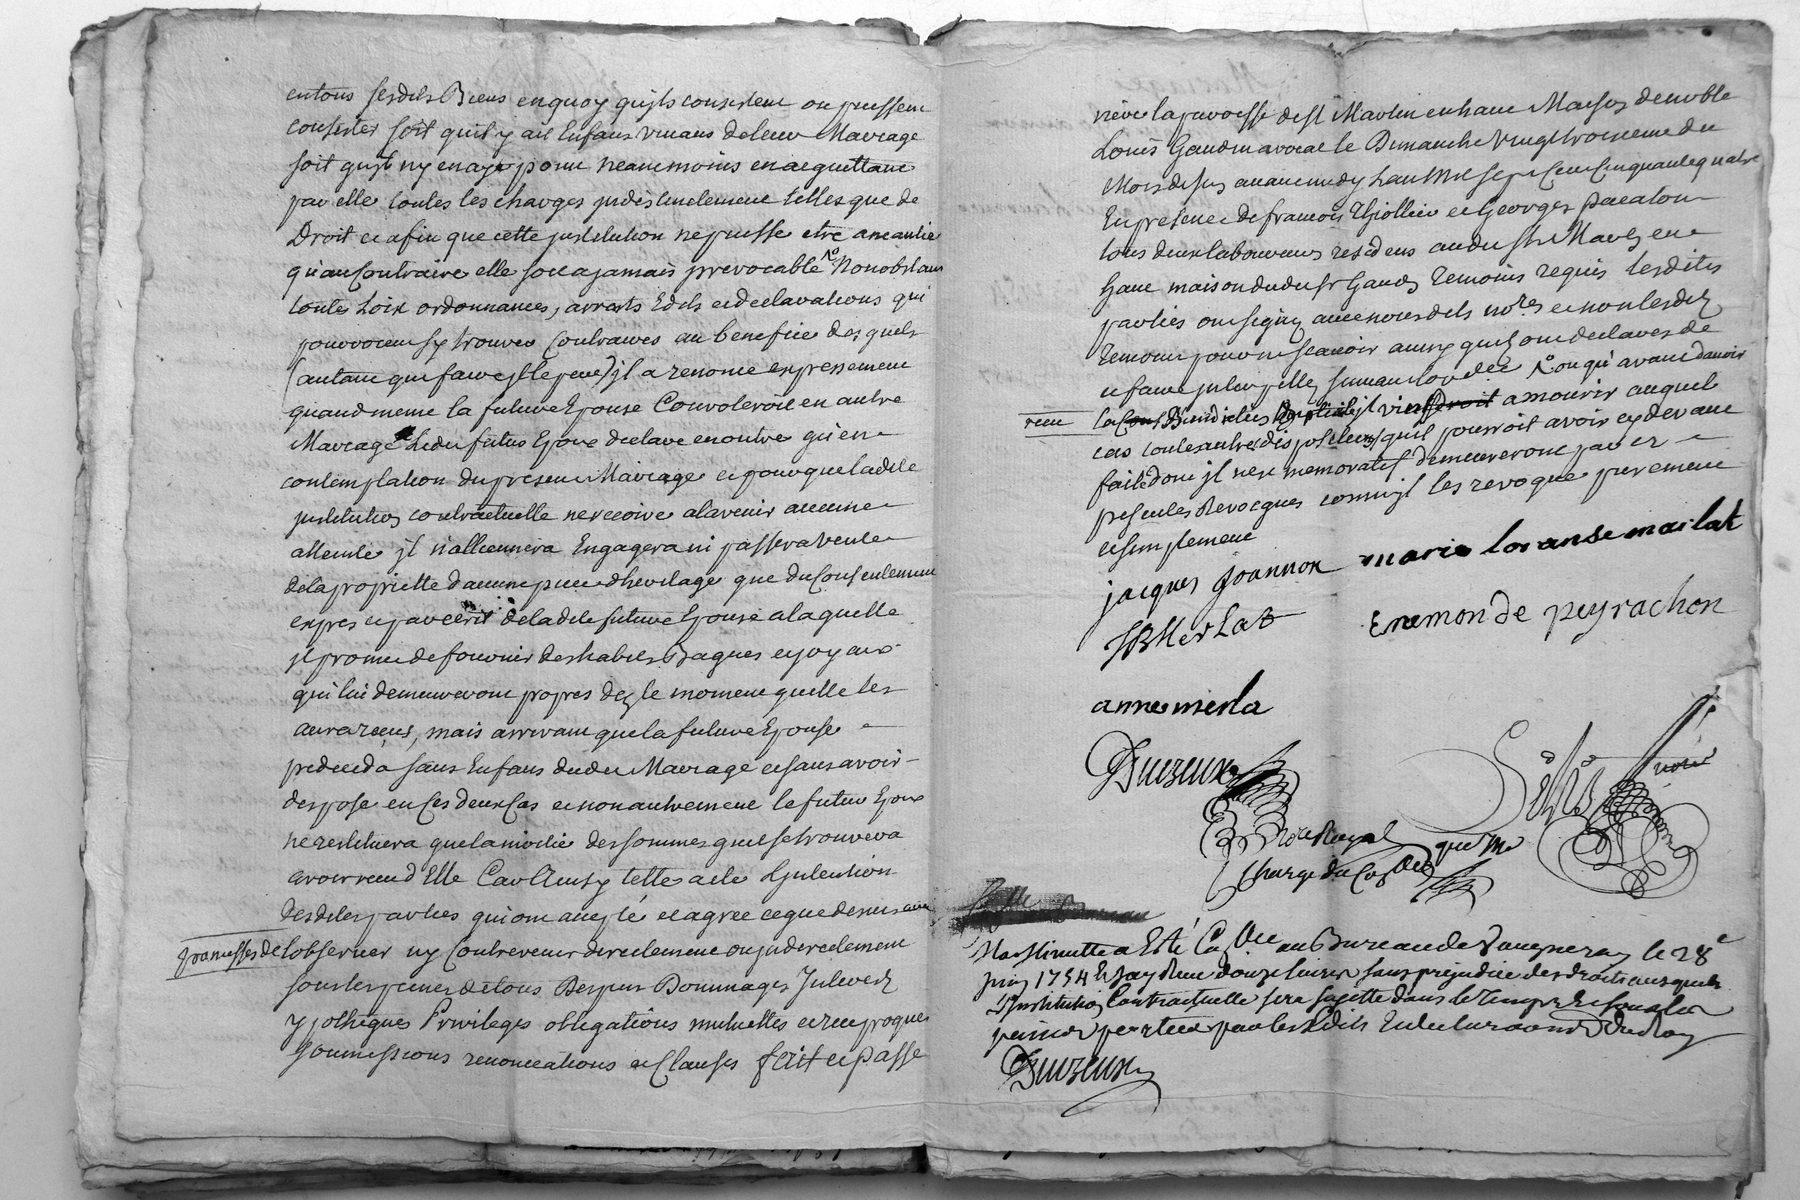 en tous sesdits Biens en quoy quils consistent ou puissent
consister soit quil y ait Enfans vivans de leur Mariage
soit quil ny en aye point neanmoins en acquittant
par elle toutes les charges jndistinctement telles que de
Droit et afin que cette jnstitution ne puisse etre aneantie
qu'au Contraire elle soit a jamais jrrevocable Nonobstant
toutes Loix ordonnances, arrests Edits et declarations qui
pourroient sy trouver Contraires au benefice desquels
(autant que faire se peut) jl a renoncé expressement
quand meme la future Epouse Convoleroit en autre
Mariage Ledit futur Epoux declare en outre qu'en
contemplation du present Mariage et pour que ladite
jnstitution contractuelle ne recoive a lavenir aucune
atteinte jl n'allienera Engagera ni passera vente
de la propriette d'aucune piece d'heritage que du Consentement
expres et par écrit de ladite future Epouse a laquelle
jl promet de fournir des habits Bagues et joyaux
qui lui demeureront propres dez le moment quelle les
aura receus, mais arrivant que la future Epouse
predeceda sans Enfans dudit Mariage et sans avoir
disposé en ces deux Cas et non autrement le futur Epoux
ne restituera que la moitié des sommes quil se trouvera
avoir receu d'Elle Car Ainsy telle a été L'jntention
desdites parties qui ont accepté et agreé ce que dessus avec
promesses de l'observer ny Contrevenir directement ou jndirectement
sous les peines de tous Depens Dommages Jnterets
Ypotheques Privileges obligations mutuelles et reciproques
soumissions renonciations et Clauses fait et passé
riere la paroisse de St Martin en haut Maison de noble
Louis Gaudin avocat le Dimanche vingt troisieme du
Mois de juin avant midy L'an Mil sept Cent Cinquante quatre
En presence de francois Thiollier et Georges
tous deux laboureurs residens audit St Martin en
haut maison dudit sr Gaudin Temoins requis lesdites
parties ont signé avec nousdits nores et non lesdits
Temoins pour ne scavoir ainsy quils ont declarés de
ce faire jnterpellés suivant lordce ou qu'avant d'avoir
receu la Benediction jl vint a mourir auquel
cas toutes autres dispositions quil pourroit avoir cy devant
faites dont jl nest memoratif demeureront par ces
presentes Revocquées comme jl les revoque purement
et simplement
jacques Joannon marie loranse mailat
JB Merlat Enemon de peyrachon
anne merla
Duvzeux noré
nore Royal que Me
Charge du Coole
Ma Minutte a Eté Colee au Bureau de Vaugneray le 28e
juin 1754 Et Jay Reçu douze livres sans prejudice des droits ausquels
L'Jnstitution Contractuelle sera sujette dans le Temps Et sous les
peines portées par les Edits du Roy
Duvzeux